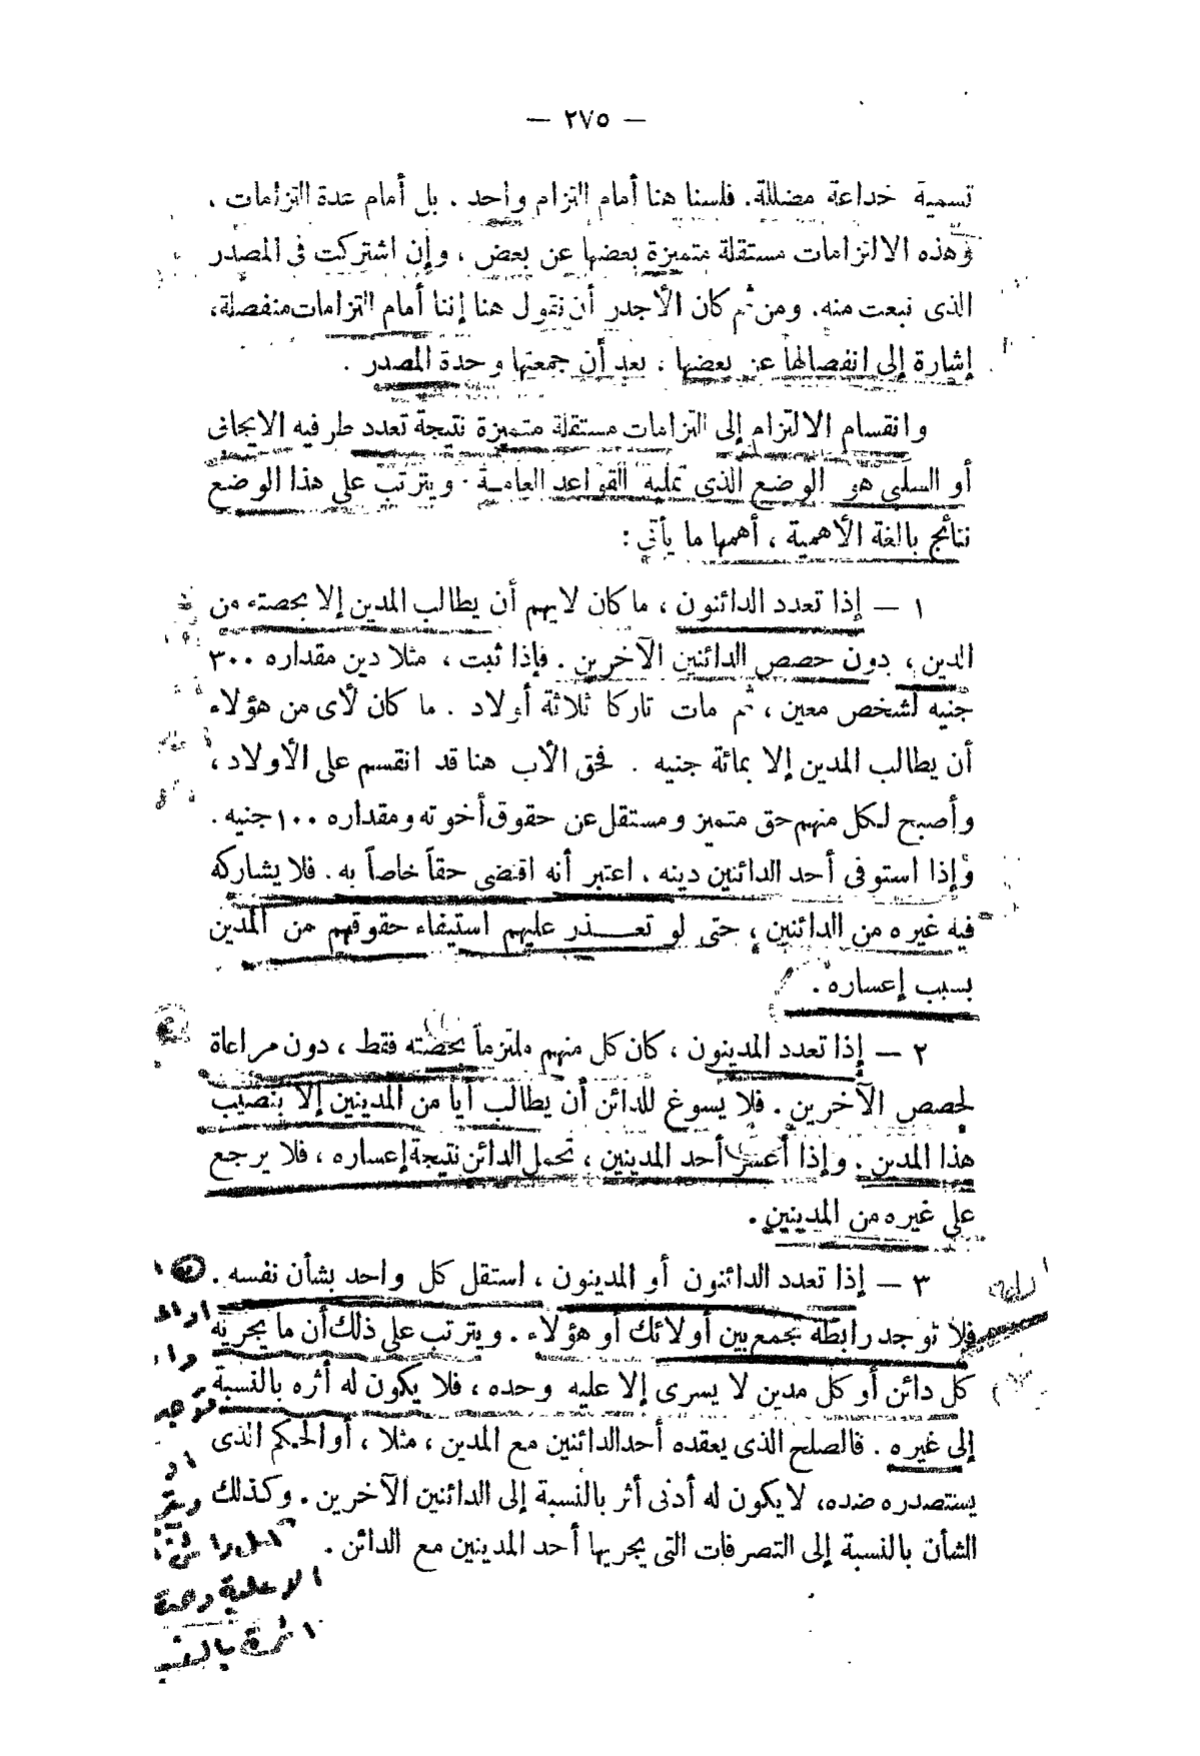 — ٢٧٥ —
تسمية خداعة مضللة. فلسنا هنا أمام التزام واحد . بل أمام عدة التزامات ،
وهذه الالنزامات مستقلة متميزة بعضها عن بعض ، وإن اشتركت فى المصدر
الذى نبعت منه. ومن ثم كان الأجدر أن نقول هنا إننا أمام التزامات منفصلة،
إشارة إلى انفصالها عن بعضها ، بعد أن جمعتها وحدة المصدر .
وانقسام الالتزام إلى التزامات مستقلة متميزة نتيجة تعدد طرفيه الايجابى
أو السلبى هو الوضع الذى تمليه القواعد العامة . ويترتب على هذا الوضع
نتائج بالغة الأهمية ، أهمها ما يأتى :
١ — إذا تعدد الدائنون ، ما كان لايهم أن يطالب المدين إلا بحصته من
الدين ، دون حصص الدائنين الآخرين . فإذا ثبت ، مثلا دين مقداره ٣٠٠
جنيه لشخص معين ، ثم مات تاركا ثلاثة أولاد . ما كان لأى من هؤلاء
أن يطالب المدين إلا بمائة جنيه . فحق الأب هنا قد انقسم على الأولاد ،
وأصبح لكل منهم حق متميز ومستقل عن حقوق أخوته ومقداره ١٠٠ جنيه .
وإذا استوفى أحد الدائنين دينه . اعتبر أنه اقتضى حقاً خاصاً به . فلا يشاركه
فيه غيره من الدائنين ، حتى لو تعـــذر عليهم استيفاء حقوقهم من المدين
بسبب إعساره .
٢ — إذا تعدد المدينون ، كان كل منهم ملتزماً بحصته فقط ، دون مراعاة
لحصص الآخرين . فلا يسوغ للدائن أن يطالب أيا من المدينين إلا بنصيب
هذا المدين . وإذا أعسر أحد المدينين ، تحمل الدائن نتيجة إعساره ، فلا يرجع
على غيره من المدينين .
٣ — إذا تعدد الدائنون أو المدينون ، استقل كل واحد بشأن نفسه .
فلا توجد رابطة تجمع بين أولائك أو هؤلاء . ويترتب على ذلك أن ما يجريه
كل دائن أو كل مدين لا يسرى إلا عليه وحده ، فلا يكون له أثره بالنسبة
إلى غيره . فالصلح الذى يعقده أحد الدائنين مع المدين ، مثلا ، أو الحكم الذى
يستصدره ضده، لا يكون له أدنى أثر بالنسبة إلى الدائنين الآخرين . وكذلك
الشأن بالنسبة إلى التصرفات التى يجريها أحد المدينين مع الدائن .